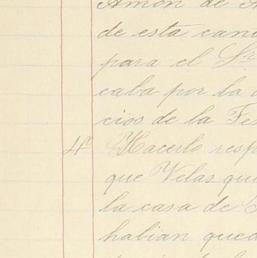 Amon de A
de esta can
para el Sr
caba por la
cios de la Fe
4º Hacerlo resp
que Velas qu
la casa de
habian qued